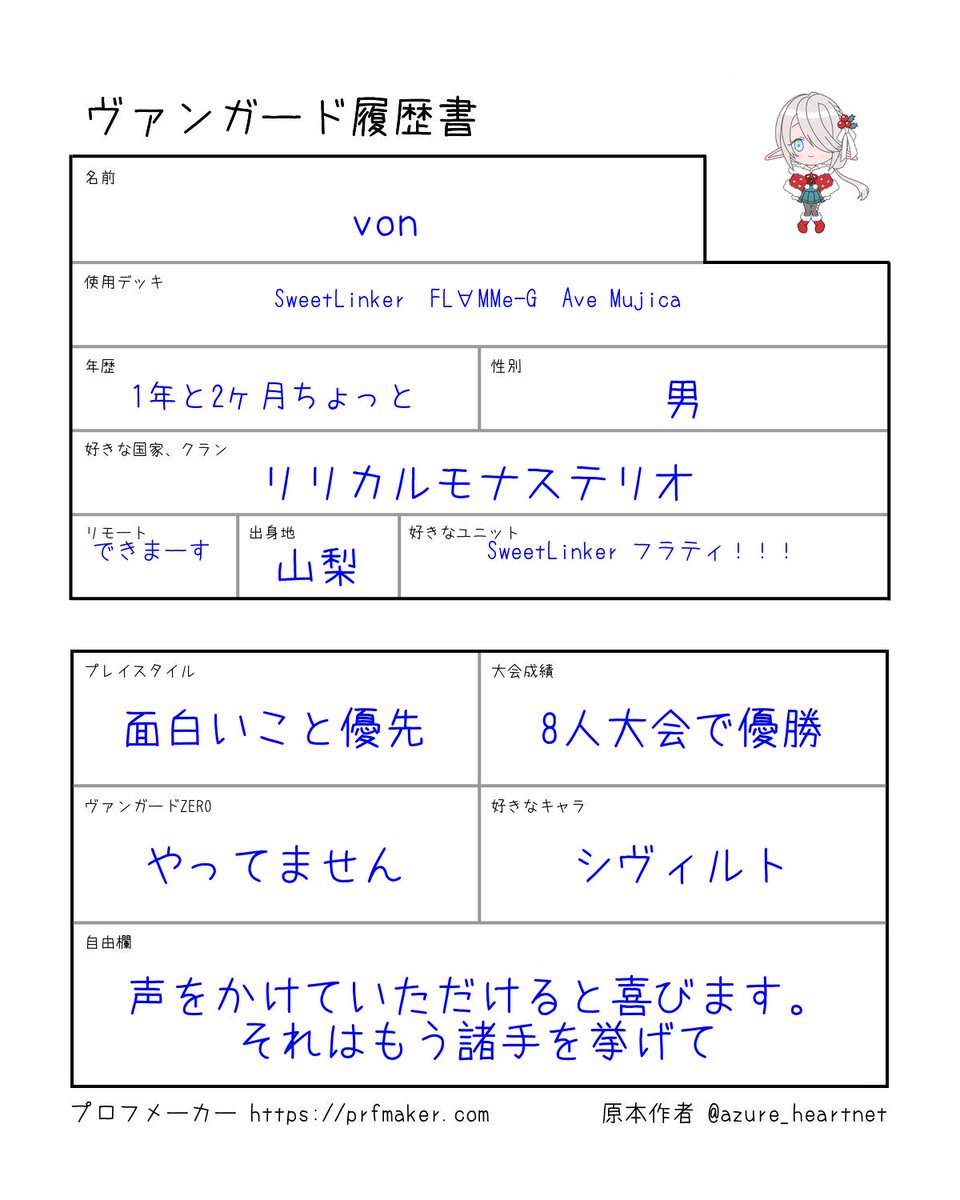 ヴァンガード履歴書
名前
von
使用デッキ
SweetLinker　FL∀MMe-G　Ave Mujica
年歴
1年と2ヶ月ちょっと
性別
男
好きな国家、クラン
リリカルモナステリオ
リモート
できまーす
出身地
山梨
好きなユニット
SweetLinker フラティ！！！
プレイスタイル
面白いこと優先
大会成績
8人大会で優勝
ヴァンガードZERO
やってません
好きなキャラ
シヴィルト
自由欄
声をかけていただけると喜びます。
それはもう諸手を挙げて
プロフメーカー https://prfmaker.com
原本作者 @azure_heartnet